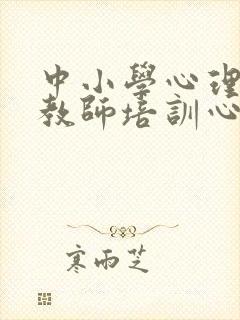 中小學心理
教師培訓心
寒雨芝